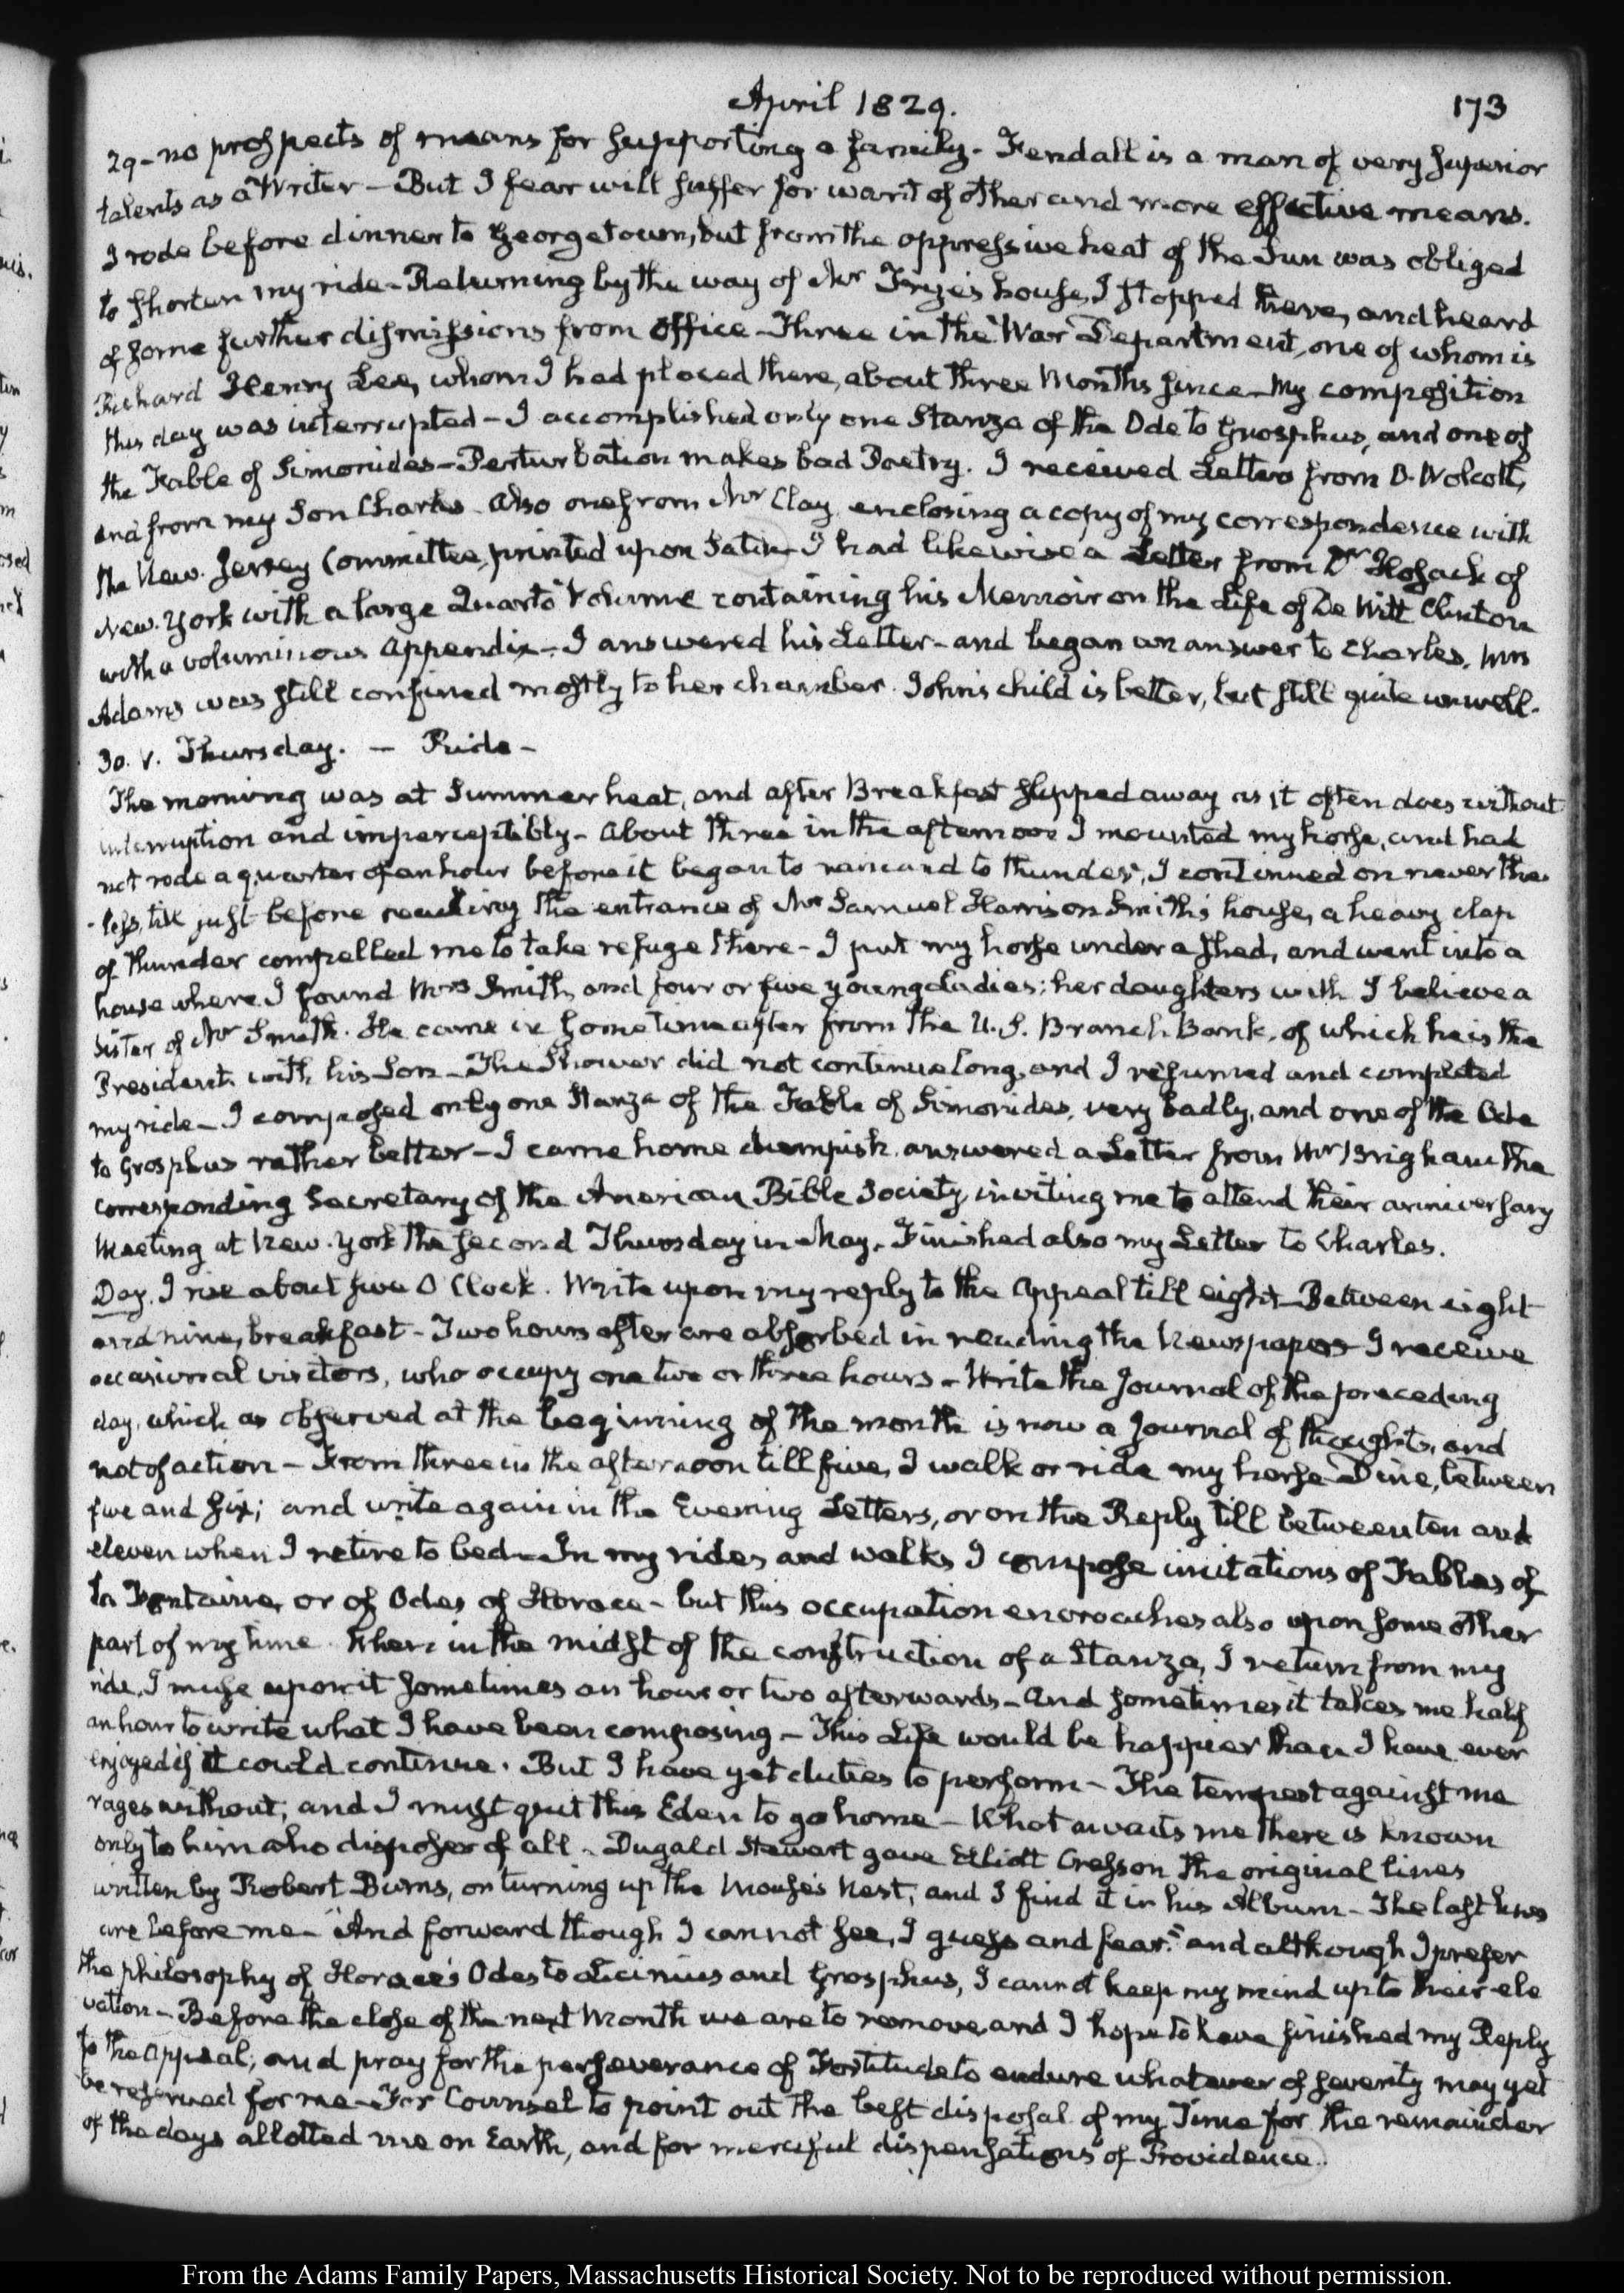 April 1829.
173
29 - no prospects of means for supporting a family - Kendall is a man of very superior
talents as a Writer - But I fear will suffer for want of other and more effective means.
I rode before dinner to Georgetown, but from the oppressive heat of the Sun was obliged
to shorten my ride - Returning by the way of Mr Frye's house, I stopped there, and heard
of some further dismissions from office - Three in the War Department, one of whom is
Richard Henry Lee, whom I had placed there, about three Months since - My composition
this day was interrupted - I accomplished only one Stanza of the Ode to Grosphus, and one of
the Fable of Simonides - Perturbation makes bad Poetry. I received Letters from O. Wolcott,
and from my Son Charles - Also one from Mr Clay enclosing a copy of my correspondence with
the New-Jersey Committee, printed upon Satin - I had likewise a Letter from Dr Hosack of
New-York with a large Quarto Volume containing his Memoir on the Life of De Witt Clinton
with a voluminous Appendix - I answered his Letter - and began an answer to Charles. Mrs
Adams was still confined mostly to her chamber. John's child is better, but still quite unwell.
30. V. Thursday. - Ride -
The morning was at Summer heat, and after Breakfast slipped away as it often does without
interruption and imperceptibly - About three in the afternoon I mounted my horse, and had
not rode a quarter of an hour before it began to rain and to thunder, I continued on neverthe-
-less, till just before reaching the entrance of Mr Samuel Harrison Smith's house, a heavy clap
of thunder compelled me to take refuge there - I put my horse under a shed, and went into a
house where I found Mrs Smith, and four or five young Ladies; her daughters with I believe a
Sister of Mr Smith. He came in sometime after from the U.S. Branch Bank, of which he is the
President, with his Son - The Shower did not continue long, and I resumed and completed
my ride - I composed only one Stanza of the Fable of Simonides, very badly, and one of the Ode
to Grosphus rather better - I came home dumpish, answered a Letter from Mr Brigham the
corresponding Secretary of the American Bible Society, inviting me to attend their anniversary
Meeting at New-York the second Thursday in May. Finished also my Letter to Charles.
Day. I rise about five O'Clock. Write upon my reply to the Appeal till eight - Between eight
and nine, breakfast - Two hours after are absorbed in reading the Newspapers - I receive
occasional visitors, who occupy one two or three hours - Write the Journal of the preceding
day, which as observed at the beginning of the month is now a Journal of thoughts, and
not of action - From three in the afternoon till five, I walk or ride my horse - Dine, between
five and six; and write again in the Evening Letters, or on the Reply till between ten and
eleven when I retire to bed - In my rides and walks I compose imitations of Fables of
La Fontaine, or of Odes of Horace - but this occupation encroaches also upon some other
part of my time. When in the midst of the construction of a Stanza, I return from my
ride, I muse upon it sometimes an hour or two afterwards - And sometimes it takes me half
an hour to write what I have been composing - This Life would be happier than I have ever
enjoyed if it could continue. But I have yet duties to perform - The tempest against me
rages without, and I must quit this Eden to go home - What awaits me there is known
only to him who disposes of all - Dugald Stewart gave Elliott Cresson the original lines
written by Robert Burns, on turning up the Mouse's Nest, and I find it in his Album - The last lines
are before me - "And forward though I cannot see, I guess and fear." and although I prefer
the philosophy of Horace's Odes to Licinius and Grosphus, I cannot keep my mind up to their ele
vation - Before the close of the next Month we are to remove, and I hope to have finished my Reply
to the Appeal; and pray for the perseverance of Fortitude to endure whatever of severity may yet
be reserved for me - For Counsel to point out the best disposal of my Time for the remainder
of the days allotted me on Earth, and for merciful dispensations of Providence.
From the Adams Family Papers, Massachusetts Historical Society. Not to be reproduced without permission.